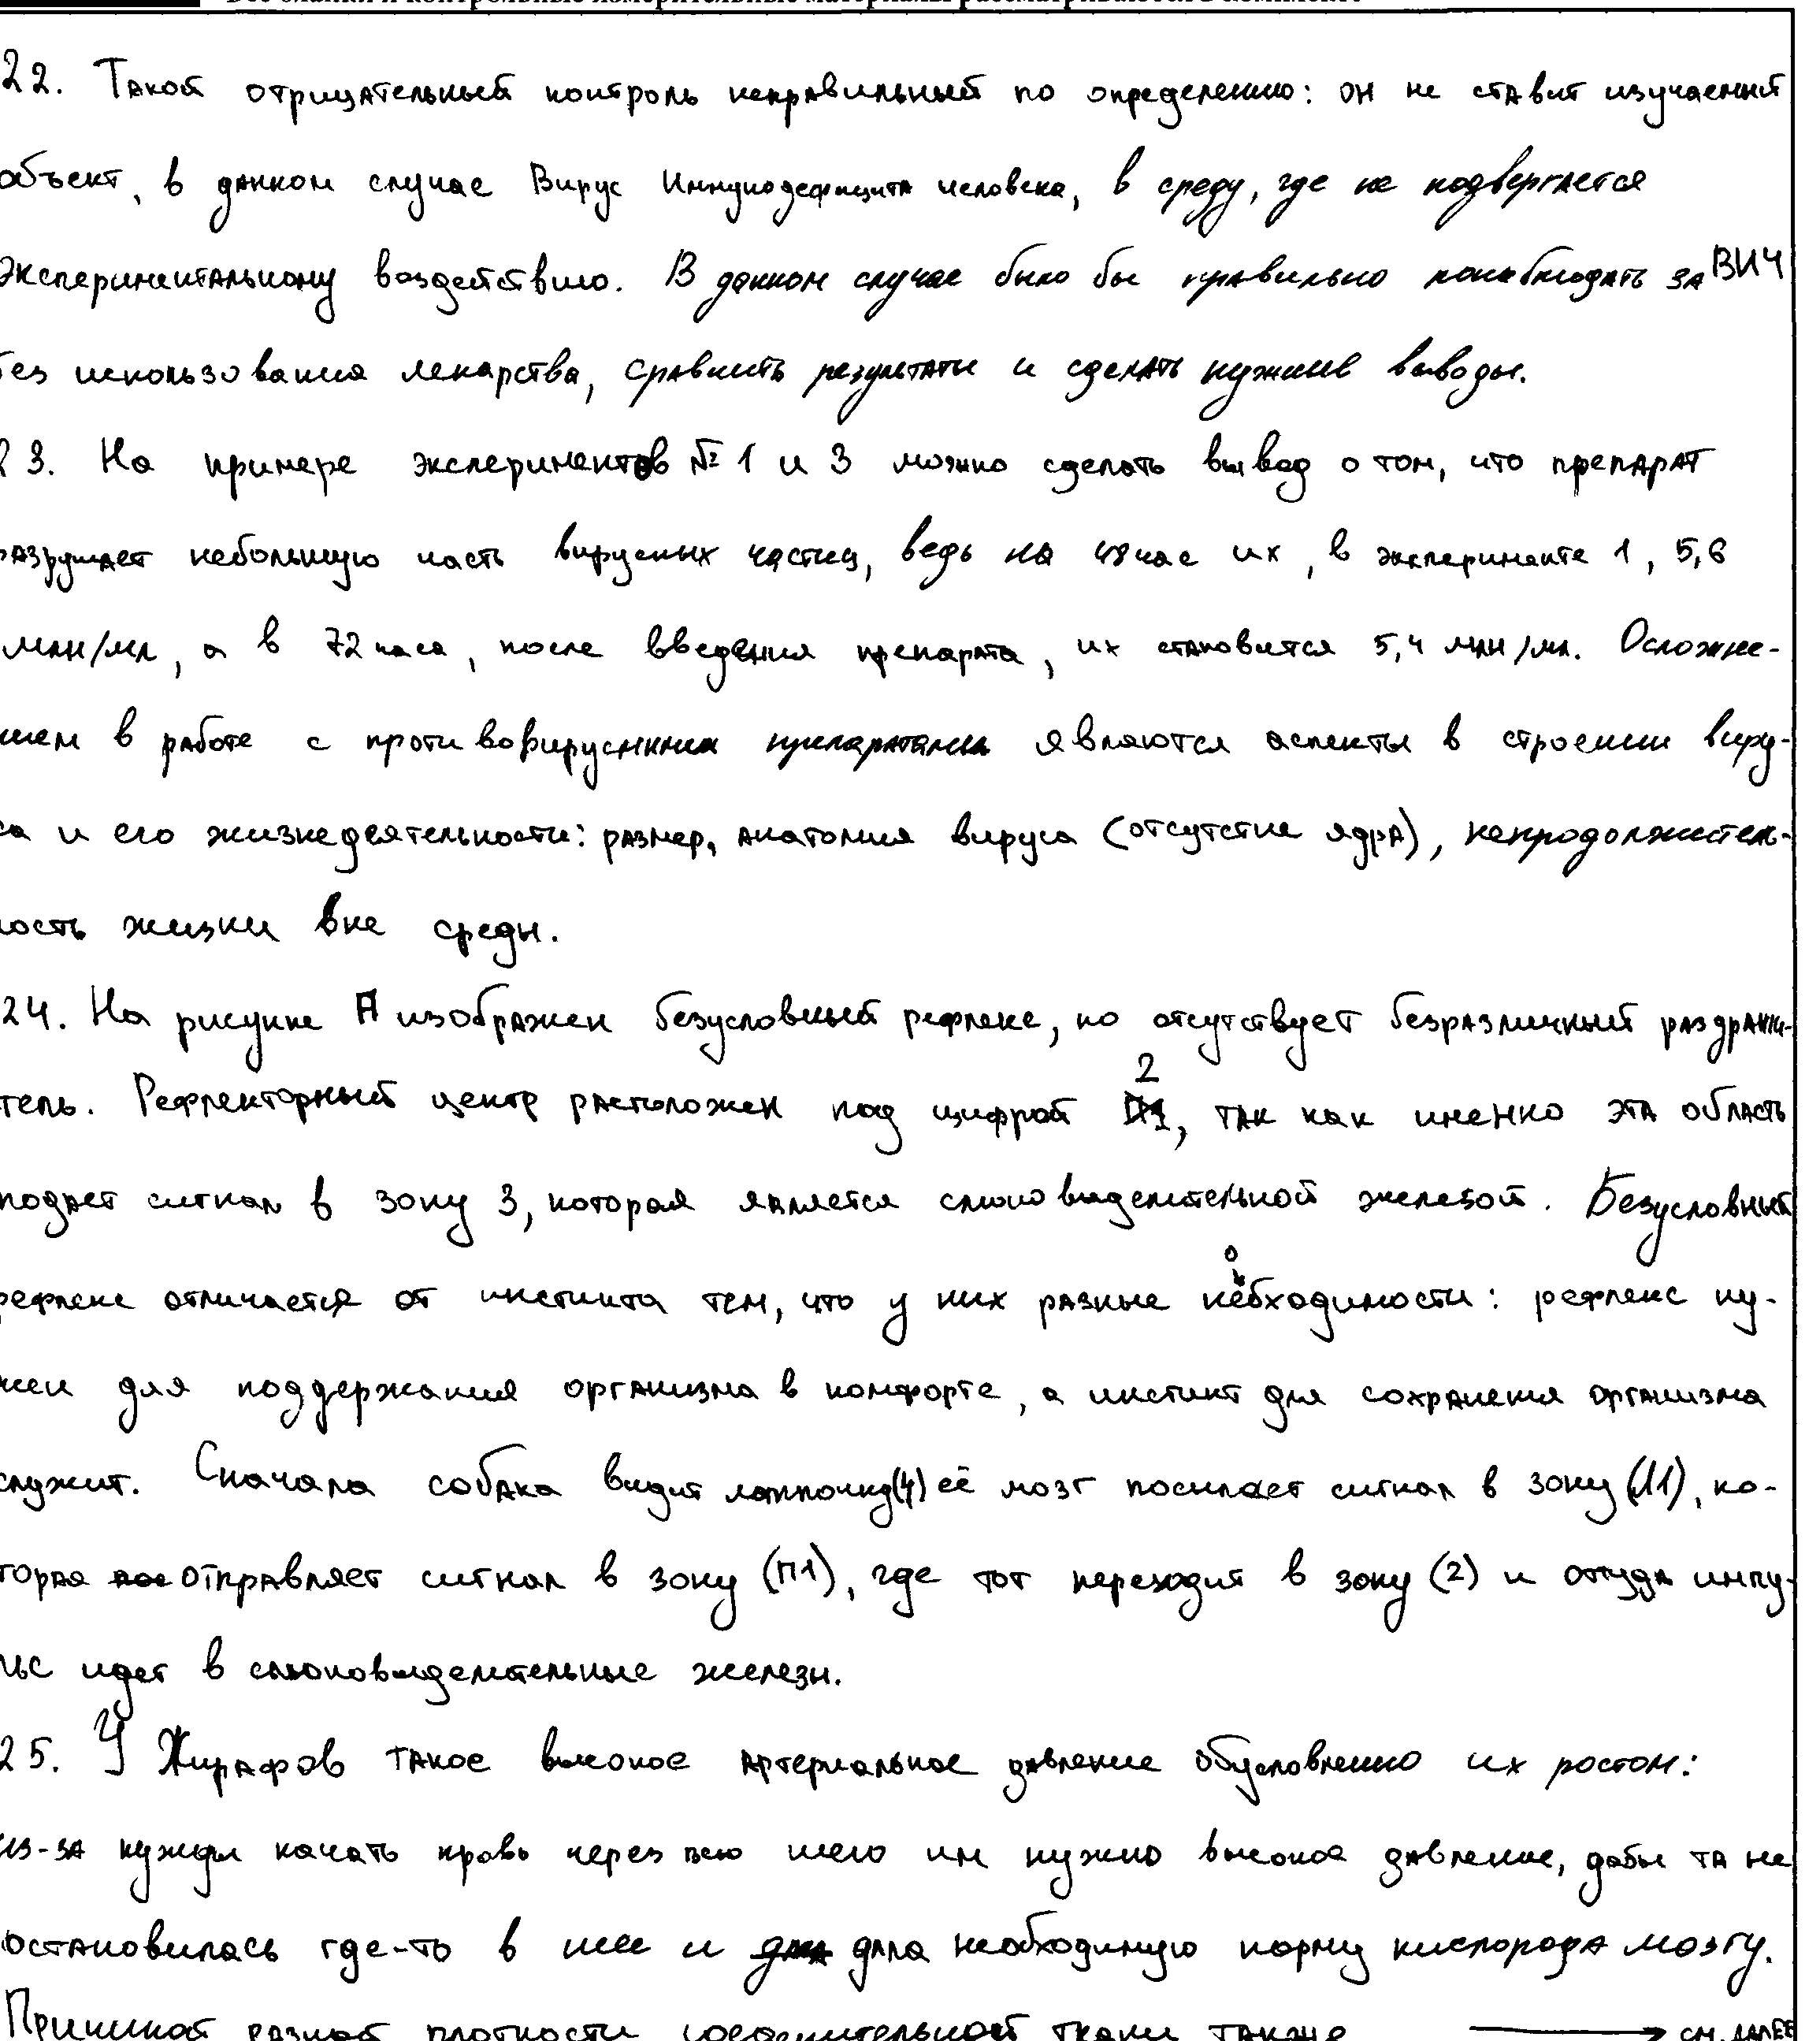 Все бланки и контрольные измерительные материалы рассматриваются в комплекте
22. Такой отрицательный контроль неправильный по определению: он не ставит изучаемый
объект, в данном случае Вирус Иммунодефицита человека, в среду, где не подвергается
экспериментальному воздействию. В данном случае было бы правильно понаблюдать за ВИЧ
без использования лекарства, сравнить результаты и сделать нужные выводы.
23. На примере экспериментов № 1 и 3 можно сделать вывод о том, что препарат
разрушает небольшую часть вирусных частиц, ведь на 48 час их, в эксперименте 1, 5,6
млн/мл, а в 72 часа, после введения препарата, их становится 5,4 млн/мл. Осложне-
нием в работе с противовирусными препаратами являются аспекты в строении виру-
са и его жизнедеятельности: размер, анатомия вируса (отсутстие ядра), непродолжитель-
ность жизни вне среды.
24. На рисунке А изображен безусловный рефлекс, но отсутствует безразличный раздражи-
тель. Рефлекторный центр расположен под цифрой 2, так как именно эта область
подает сигнал в зону 3, которая является слюновыделительной железой. Безусловный
рефлекс отличается от инстинкта тем, что у них разные необходимости: рефлекс ну-
жен для поддержания организма в комфорте, а инстинкт для сохранения организма
служит. Сначала собака видит лампочку(4) её мозг посылает сигнал в зону (Л1), ко-
торая отправляет сигнал в зону (П1), где тот переходит в зону (2) и оттуда импу-
льс идет в слюновыделительные железы.
25. У Жирафов такое высокое артериальное давление обусловленно их ростом:
из-за нужды качать кровь через всю шею им нужно высокое давление, дабы та не
остановилась где-то в шее и дала необходимую норму кислорода мозгу.
Причиной разной плотности соединительной ткани также → см. далее